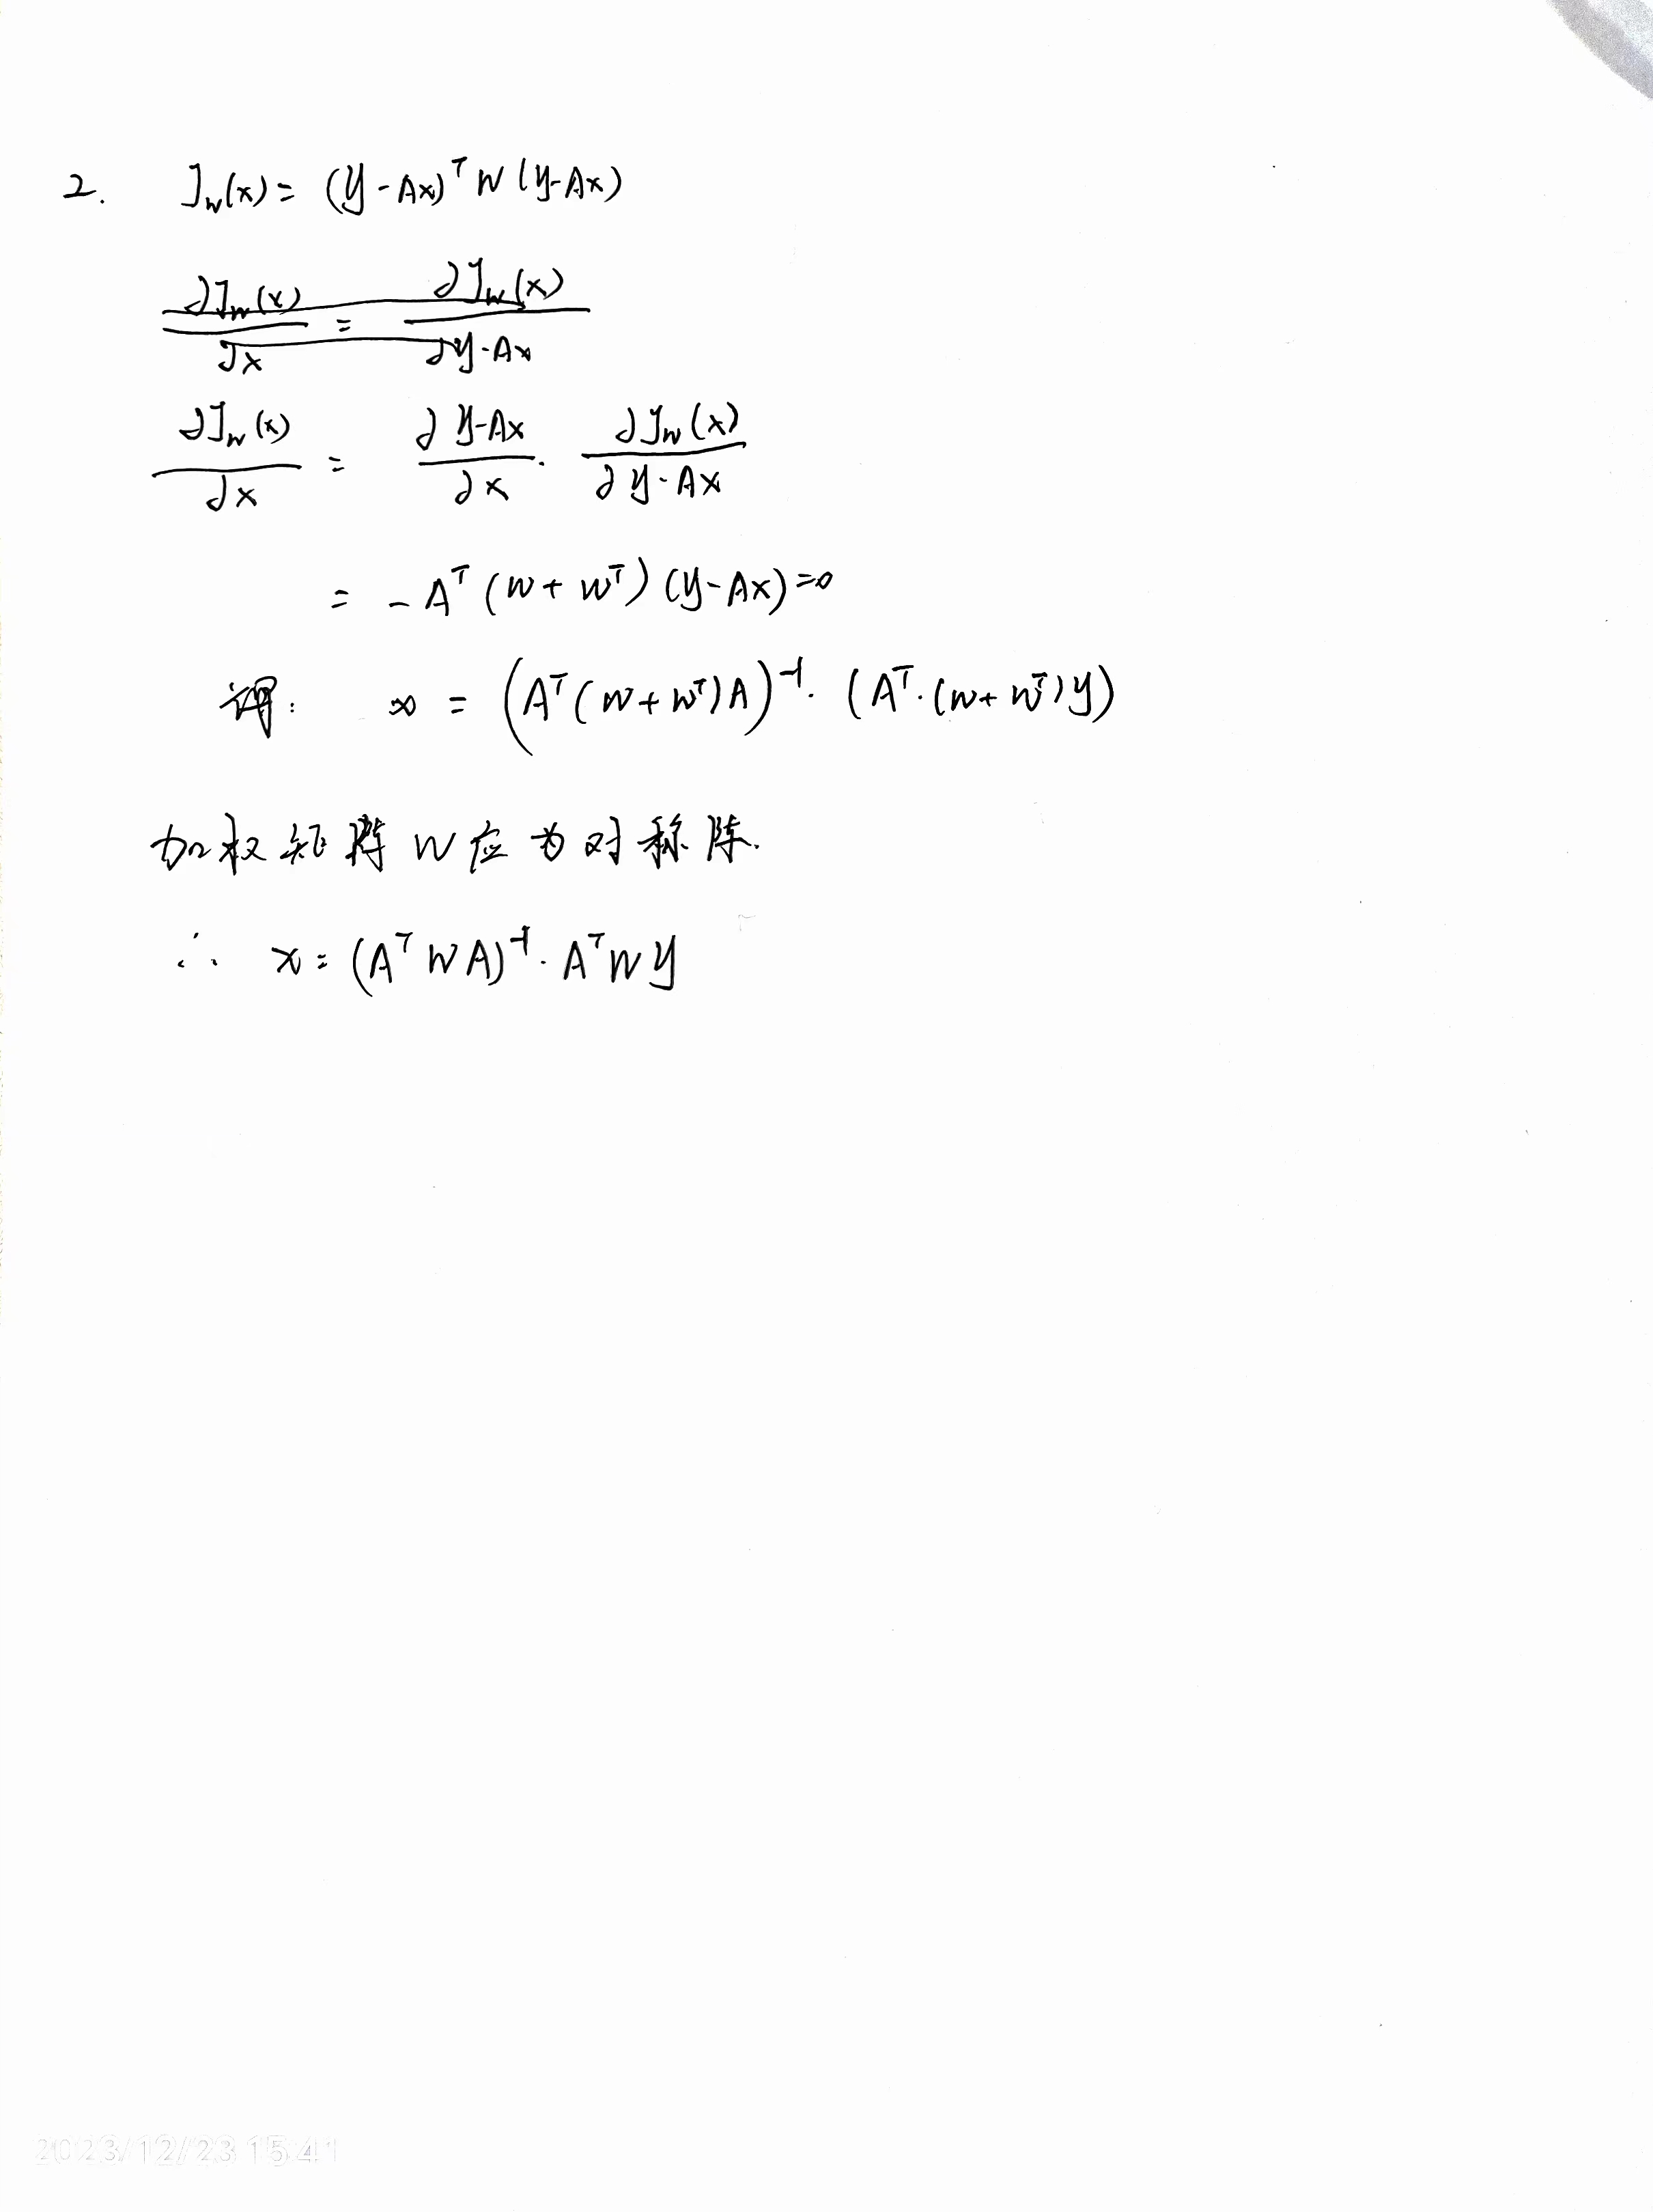 2. J_w(x) = (y-Ax)^T W (y-Ax)
∂J_w(x)/∂x = ∂J_w(x)/∂y-Ax
∂J_w(x)/∂x = ∂y-Ax/∂x · ∂J_w(x)/∂y-Ax
= -A^T (W + W^T) (y-Ax) = 0
得: x = (A^T (W + W^T) A)^-1 · (A^T · (W + W^T) y)
加权矩阵 W 应为对称阵.
∴ x = (A^T W A)^-1 · A^T W y
2023/12/23 15:41